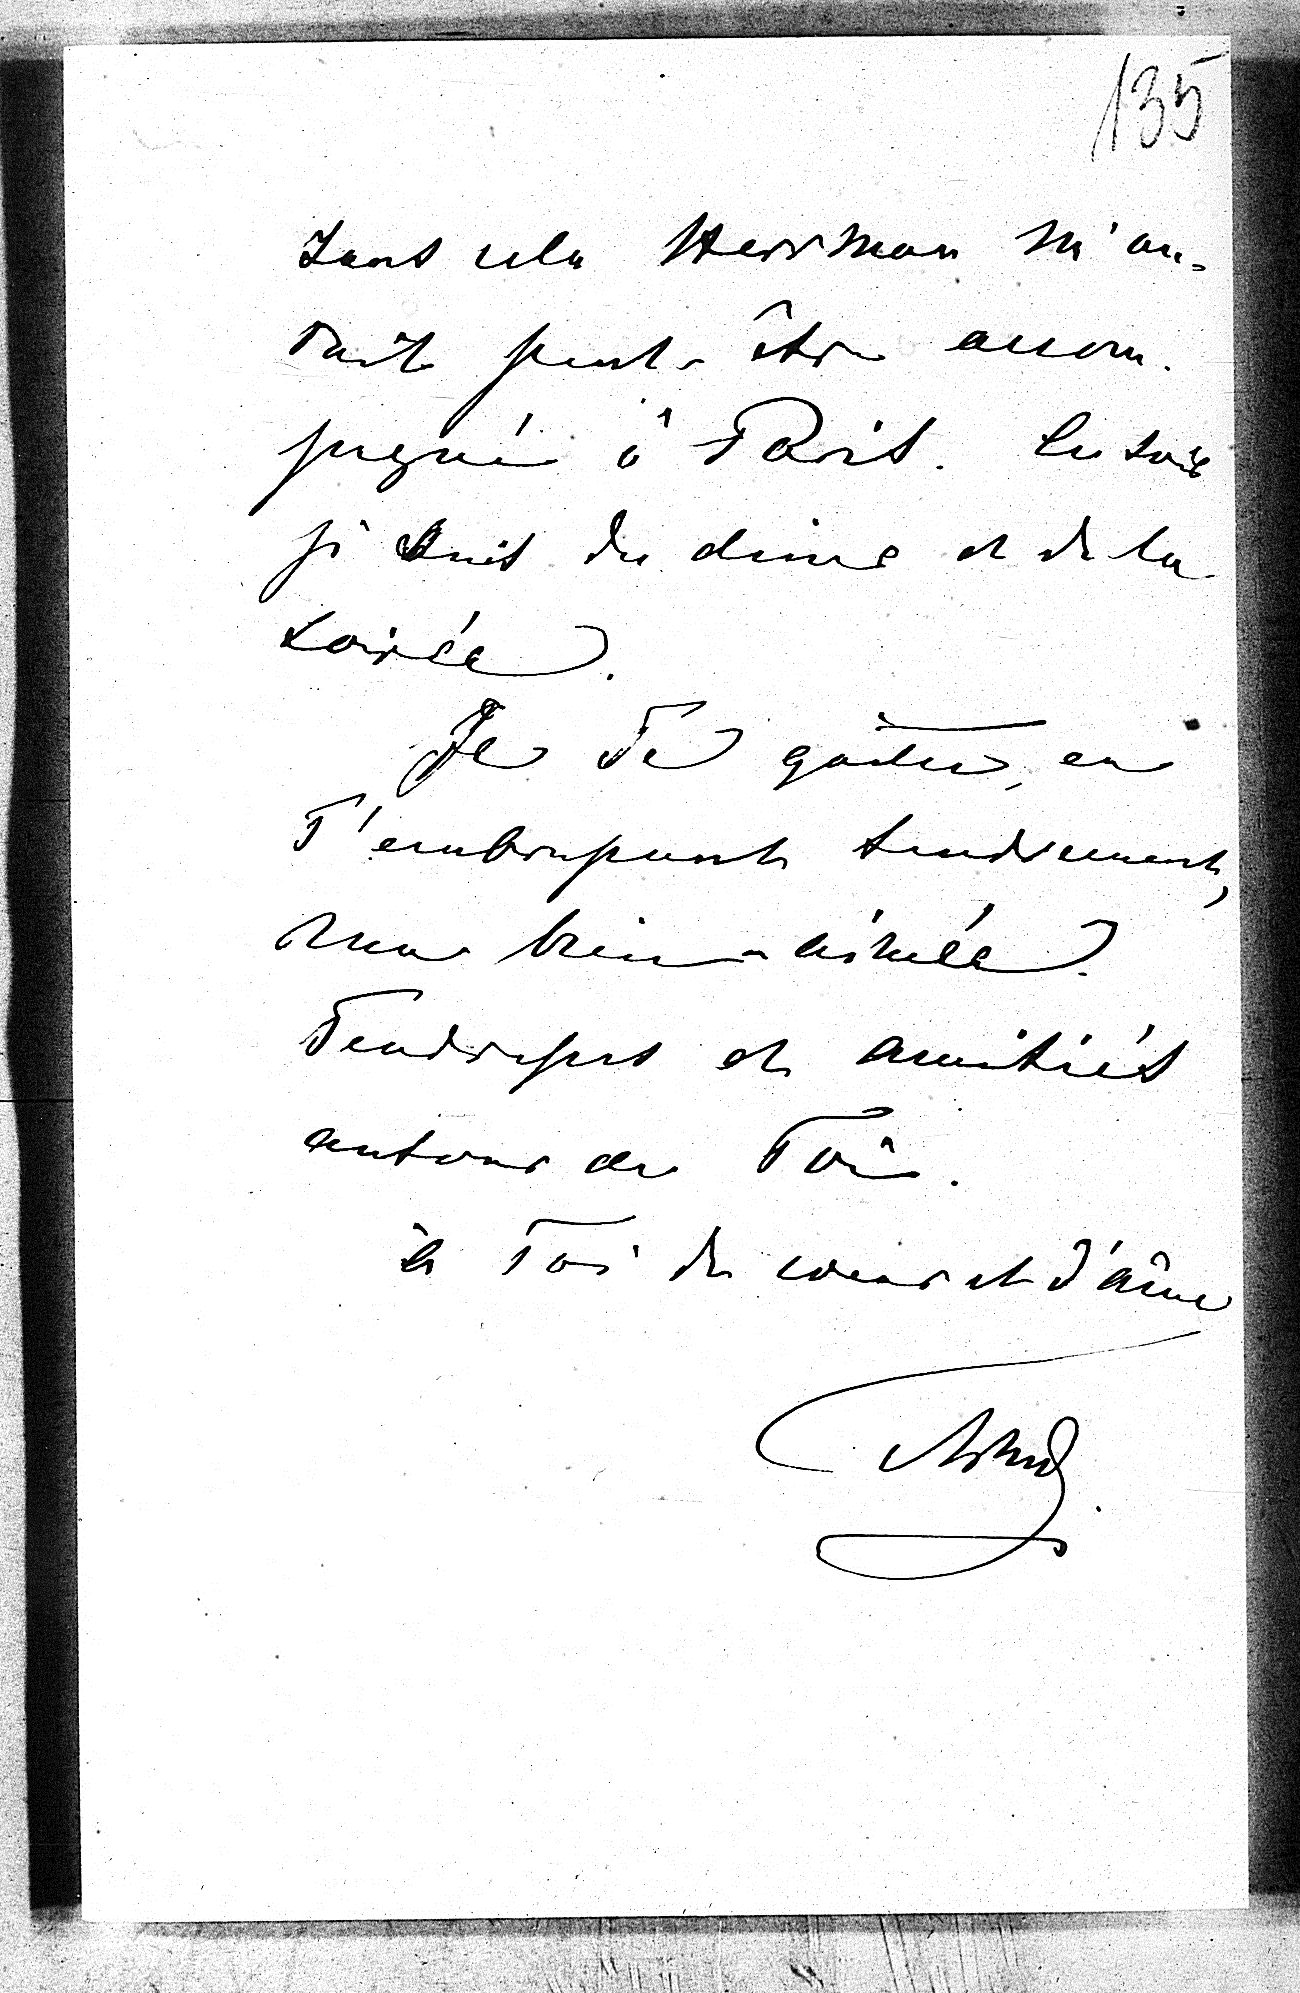 135
sans cela Herrman m'au-
rait peut-être accom-
pagné à Paris. Ce soir
je suis du dîner et de la
soirée.
Je Te quitte, en
T'embrassant tendrement,
ma bien-aimée.
Tendresses et amitiés
autour de Toi.
à Toi de coeur et d'âme